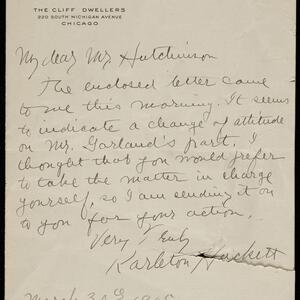 THE CLIFF DWELLERS
220 SOUTH MICHIGAN AVENUE
CHICAGO
My dear Mr Hutchinson
The enclosed letter came
to me this morning. It seems
to indicate a change of attitude
on Mr. Garland's part. I
thought that you would prefer
to take the matter in charge
yourself, so I am sending it on
to you for your action.
Very Truly
Karleton Hackett
March 3